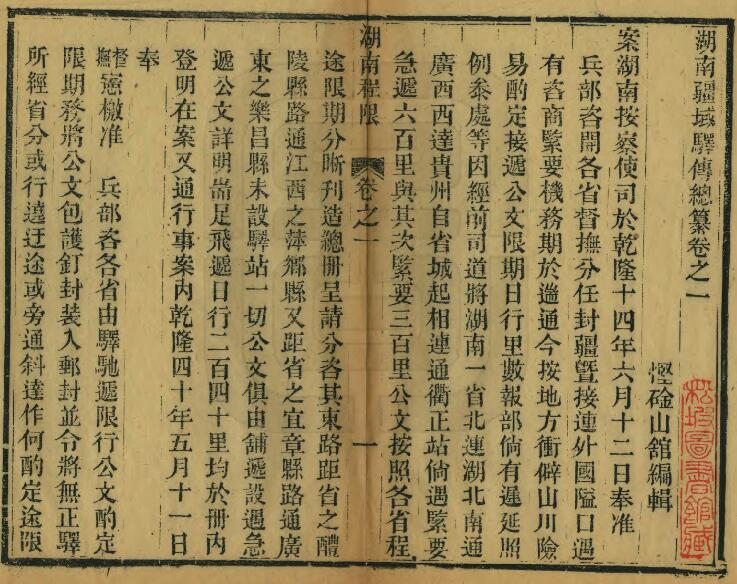 湖南疆域驛傳總纂卷之一
慳硷山館編輯
案湖南按察使司於乾隆十四年六月十二日奉准
兵部咨開各省督撫分任封疆曁接連外國隘口遇
有咨商緊要機務期於迅通今按地方衝僻山川險
易酌定接遞公文限期日行里數報部倘有遲延照
例叅處等因經前司道將湖南一省北連湖北南通
廣西西達貴州自省城起相連通衢正站倘遇緊要
急遞六百里與其次緊要三百里公文按照各省程
湖南程限 卷之一 一
途限期分晰刊造總冊呈請分咨其東路距省之醴
陵縣路通江西之萍鄉縣又距省之宜章縣路通廣
東之樂昌縣未設驛站一切公文俱由舖遞設遇急
遞公文詳明耑足飛遞日行二百四十里均於冊內
登明在案又通行事案內乾隆四十年五月十一日
奉
督撫憲檄准 兵部咨各省由驛馳遞限行公文酌定
限期務將公文包護釘封裝入郵封並令將無正驛
所經省分或行遶迂途或旁通斜達作何酌定途限
松坡圖書館藏